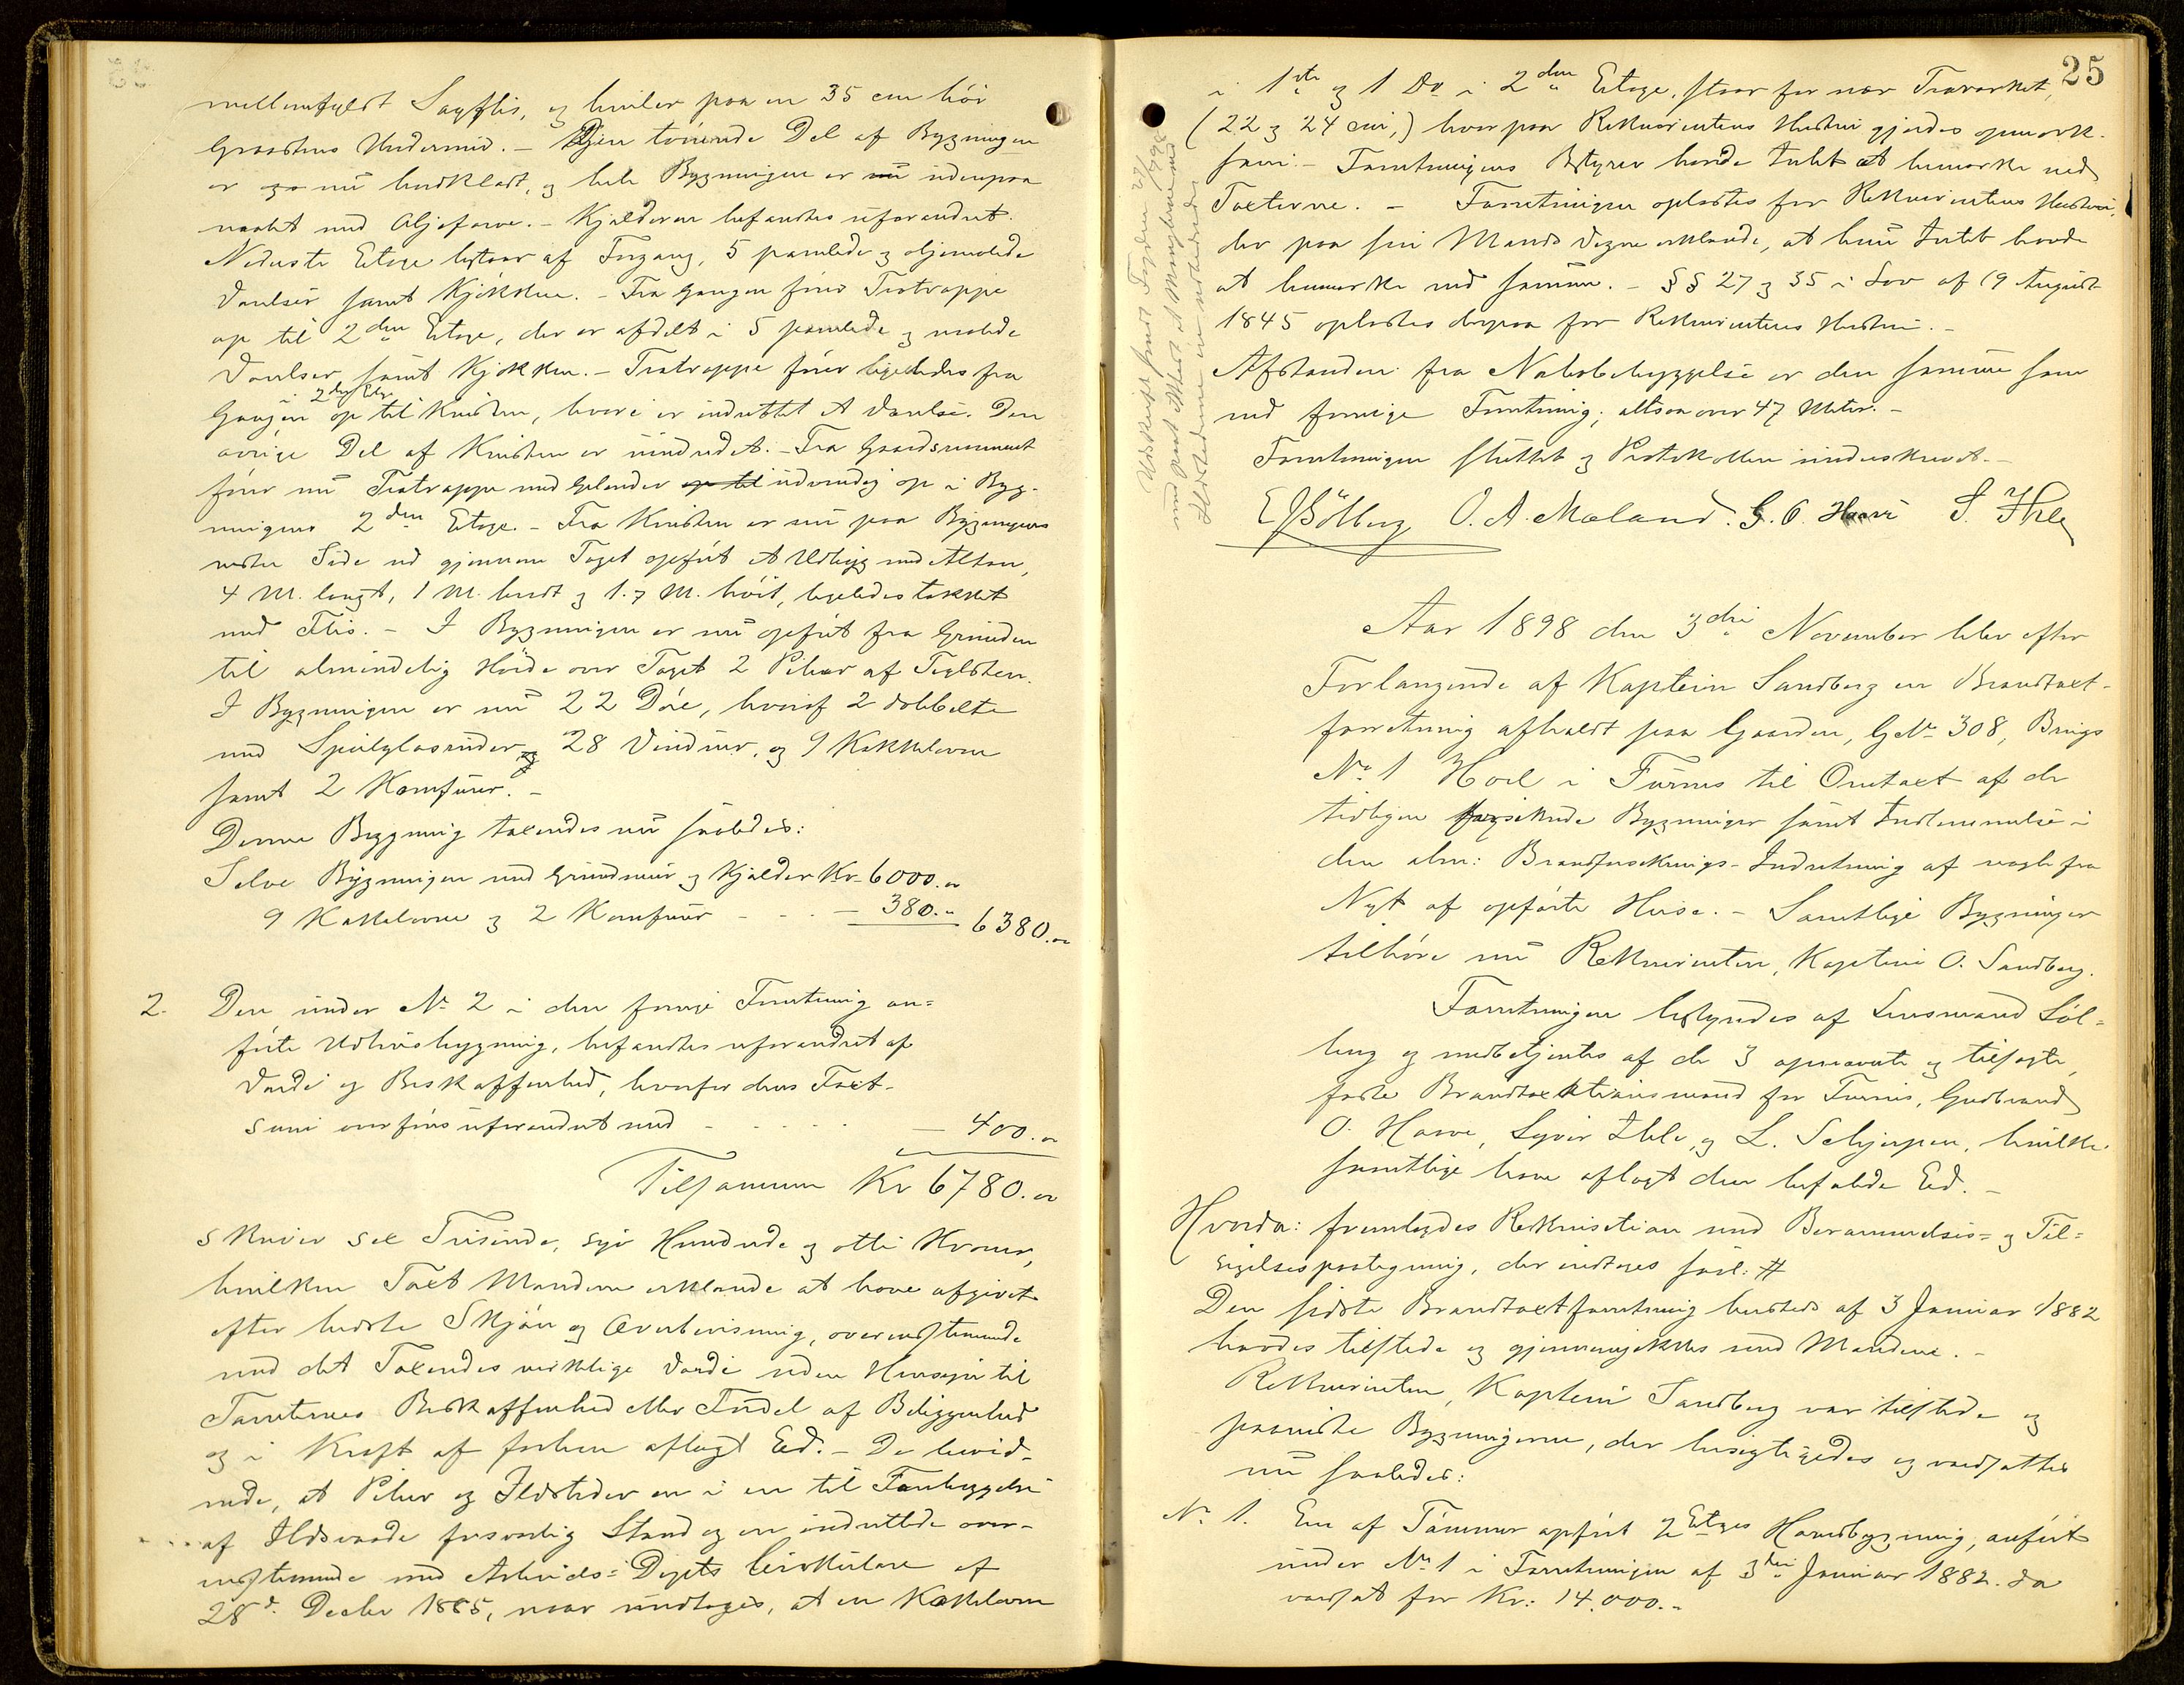 mellemfyldt Sagflis, og hviler paa en 35 cm høi
Graastens Undermur. - Øien tørrende Del af Bygningen
er nu bordklædt, og hele Bygningen er nu udenpaa
malet med Oljefarve. - Kjælderen befandtes uforandret.
Nederste Etage bestaar af Forgang, 5 panelede og oljemalede
Værelser samt Kjøkken. - Fra Gangen fører Trætrappe
op til 2den Etage, der er afdelt i 5 panelede og malede
Værelser samt Kjøkken. - Trætrappe fører ligeledes fra
Gangen i 2den Etg. op til Kvisten, hvori er indrettet et Værelse. Den
øvrige Del af Kvisten er uindredet. - Fra Gaardsrummet
fører nu Trætrappe med Gelender op til udvendig op i Byg-
ningens 2den Etage. - Fra Kvisten er nu paa Bygningens
vestre Side ud gjennem Taget opført et Udbyg med Altan,
4 M. langt, 1 M. bredt og 1.7 M. høit, ligeledes tækket
med Flis. - I Bygningen er nu opført fra Grunden
til almindelig Høide over Taget 2 Piber af Teglsten.
I Bygningen er nu 22 Døre, hvoraf 2 dobbelte
med Speilglasruder, og 28 Vinduer, og 9 Kakkelovne
samt 2 Komfurer. -
Denne Bygning taxeredes nu saaledes:
Selve Bygningen med Grundmur og Kjælder Kr. 6000.00
9 Kakkelovne og 2 Komfurer - - - - 380.00 6380.00
2. Den under No 2 i den forrige Forretning an=
førte Udhusbygning, befandtes uforandret af
Værdi og Beskaffenhed, hvorfor dens Taxt-
sum overføres uforandret med - - - - - - 400.00
Tilsammen Kr 6780.00
skriver sex Tusinde, syv Hundrede og otti Kroner,
hvilken Taxt Mændene erklærede at have afgivet
efter bedste Skjøn og Overbevisning, overensstemmende
med det Taxeredes virkelige Værdi uden Hensyn til
Tomternes Beskaffenhed eller Fordel af Beliggenhed
og i Kraft af forhen aflagt Ed. - De bevid-
nede, at Piber og Ildsteder er i en til Forebyggelse
af Ildsvaade forsvarlig Stand og er indrettede over-
ensstemmende med Arbeids=Depts Cirkulære af
28d. Decbr 1885, naar undtages, at en Kakkelovn
25
i 1ste og 1 Do i 2den Etage, staar for nær Træværket,
(22 og 24 cm,) hvorpaa Rekvirentens Hustru gjordes opmærk-
som. - Forretningens Bestyrer havde Intet at bemærke ved
Taxterne. - Forretningen oplæstes for Rekvirentens Hustru,
der paa sin Mands Vegne erklærede, at hun Intet havde
at bemærke ved samme. - §§ 27 og 35 i Lov af 19 August
1845 oplæstes derpaa for Rekvirentens Hustru. -
Afstanden fra Nabobebyggelse er den samme som
ved forrige Forretning; altsaa over 47 Meter. -
Forretningen sluttet og Protokollen underskrevet. -
O. A. Mæland. G. O. Haave S. Ihle
Aar 1898 den 3die November blev efter
Forlangende af Kaptein Sandberg en Brandtaxt-
forretning afholdt paa Gaarden, GNo 308, Brugs
No 1 Hoel i Furnes til Omtaxt af de
tidligere forsikrede Bygninger samt Indlemmelse i
den alm: Brandforsikrings-Indretning af nogle fra
Nyt af opførte Huse. - Samtlige Bygninger
tilhøre nu Rekvirenten, Kaptein O. Sandberg.
Forretningen bestyredes af Lensmand Søl=
berg og medbetjentes af de 3 opnævnte og tilsagte,
faste Brandtaxtationsmænd for Furnes, Gudbrand
O. Haave, Syver Ihle, og L. Schjerpen, hvilke
samtlige have aflagt den befalede Ed. -
Hvorda: fremlagdes Rekvisition med Berammelses= og Til=
sigelsespaategning, der indtages saal: #
Den sidste Brandtaxtforretning hersteds af 3 Januar 1882
havdes tilstede og gjennemgikkes med Mændene. -
Rekvirenten, Kaptein Sandberg var tilstede og
paaviste Bygningerne, der besigtigedes og værdsattes
nu saaledes:
No 1. En af Tømmer opført 2 Etages Hovedbygning, anført
under No 1 i Forretningen af 3die Januar 1882. da
værdsat for Kr: 14.000.-